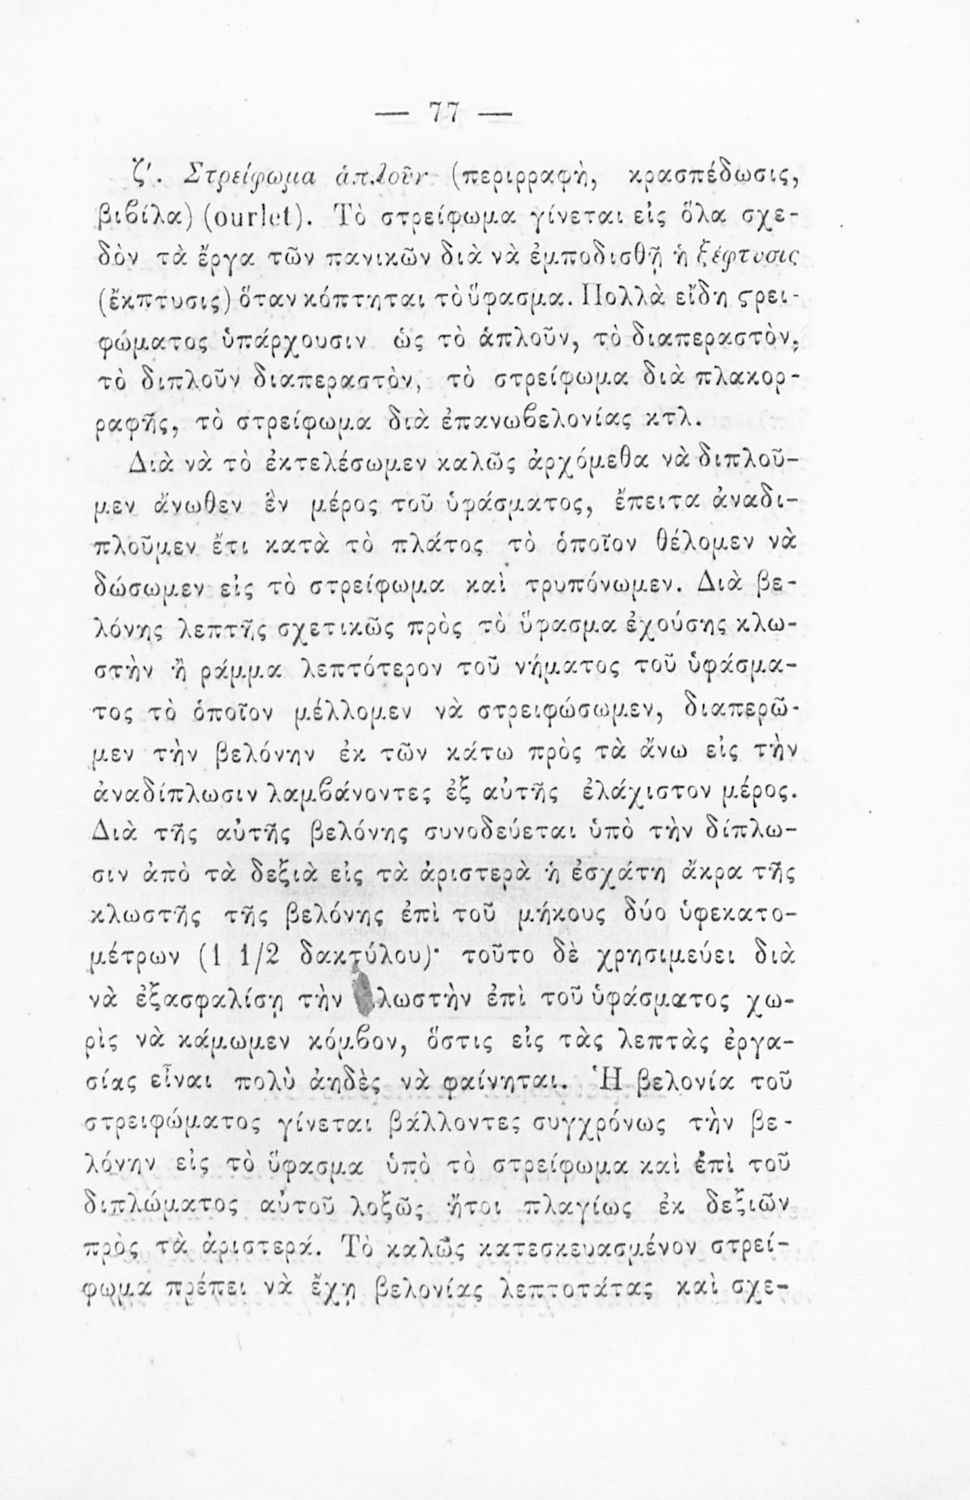 — 77 —
ζ′. Στρείφωμα ἁπλοῦν (περιρραφὴ, κρασπέδωσις,
βιβίλα) (ourlet). Τὸ στρείφωμα γίνεται εἰς ὅλα σχε-
δὸν τὰ ἔργα τῶν πανικῶν διὰ νὰ ἐμποδισθῇ ἡ ξέφτυσις
(ἔκπτυσις) ὅταν κόπτηται τὸ ὕφασμα. Πολλὰ εἴδη ϛρει-
φώματος ὑπάρχουσιν ὡς τὸ ἁπλοῦν, τὸ διαπεραστὸν,
τὸ διπλοῦν διαπεραστὸν, τὸ στρείφωμα διὰ πλακορ-
ραφῆς, τὸ στρείφωμα διὰ ἐπανωβελονίας κτλ.
Διὰ νὰ τὸ ἐκτελέσωμεν καλῶς ἀρχόμεθα νὰ διπλοῦ-
μεν ἄνωθεν ἓν μέρος τοῦ ὑφάσματος, ἔπειτα ἀναδι-
πλοῦμεν ἔτι κατὰ τὸ πλάτος τὸ ὁποῖον θέλομεν νὰ
δώσωμεν εἰς τὸ στρείφωμα καὶ τρυπόνωμεν. Διὰ βε-
λόνης λεπτῆς σχετικῶς πρὸς τὸ ὕφασμα ἐχούσης κλω-
στὴν ἢ ράμμα λεπτότερον τοῦ νήματος τοῦ ὑφάσμα-
τος τὸ ὁποῖον μέλλομεν νὰ στρειφώσωμεν, διαπερῶ-
μεν τὴν βελόνην ἐκ τῶν κάτω πρὸς τὰ ἄνω εἰς τὴν
ἀναδίπλωσιν λαμβάνοντες ἐξ αὐτῆς ἐλάχιστον μέρος.
Διὰ τῆς αὐτῆς βελόνης συνοδεύεται ὑπὸ τὴν δίπλω-
σιν ἀπὸ τὰ δεξιὰ εἰς τὰ ἀριστερὰ ἡ ἐσχάτη ἄκρα τῆς
κλωστῆς τῆς βελόνης ἐπὶ τοῦ μήκους δύο ὑφεκατο-
μέτρων (1 1/2 δακτύλου)· τοῦτο δὲ χρησιμεύει διὰ
νὰ ἐξασφαλίσῃ τὴν κλωστὴν ἐπὶ τοῦ ὑφάσματος χω-
ρὶς νὰ κάμωμεν κόμβον, ὅστις εἰς τὰς λεπτὰς ἐργα-
σίας εἶναι πολὺ ἀηδὲς νὰ φαίνηται. Ἡ βελονία τοῦ
στρειφώματος γίνεται βάλλοντες συγχρόνως τὴν βε-
λόνην εἰς τὸ ὕφασμα ὑπὸ τὸ στρείφωμα καὶ ἐπὶ τοῦ
διπλώματος αὐτοῦ λοξῶς ἤτοι πλαγίως ἐκ δεξιῶν
πρὸς τὰ ἀριστερά. Τὸ καλῶς κατεσκευασμένον στρεί-
φωμα πρέπει νὰ ἔχῃ βελονίας λεπτοτάτας καὶ σχε-